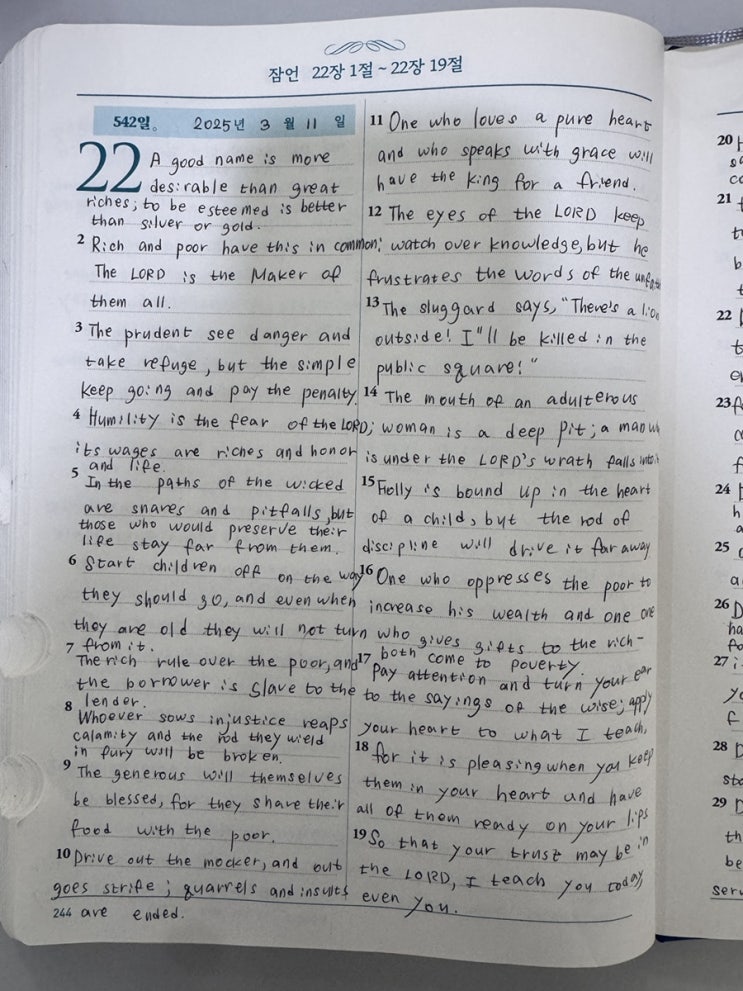 잠언 22장 1절 ~ 22장 19절
542일. 2025년 3 월 11 일
22 A good name is more
desirable than great
riches; to be esteemed is better
than silver or gold.
2 Rich and poor have this in common:
The LORD is the Maker of
them all.
3 The prudent see danger and
take refuge, but the simple
keep going and pay the penalty.
4 Humility is the fear of the LORD;
its wages are riches and honor
and life.
5 In the paths of the wicked
are snares and pitfalls, but
those who would preserve their
life stay far from them.
6 Start children off on the way
they should go, and even when
they are old they will not turn
from it.
7 The rich rule over the poor, and
the borrower is slave to the
lender.
8 Whoever sows injustice reaps
calamity and the rod they wield
in fury will be broken.
9 The generous will themselves
be blessed, for they share their
food with the poor.
10 Drive out the mocker, and out
goes strife; quarrels and insults
are ended.
244
11 One who loves a pure heart
and who speaks with grace will
have the king for a friend.
12 The eyes of the LORD keep
watch over knowledge, but he
frustrates the words of the
13 The sluggard says, "There's a lion
outside! I"ll be killed in the
public square!"
14 The mouth of an adulterous
woman is a deep pit; a man who
is under the LORD's wrath falls into it
15 Folly is bound up in the heart
of a child, but the rod of
discipline will drive it far away
16 One who oppresses the poor to
increase his wealth and one one
who gives gifts to the rich-
both come to poverty.
17 Pay attention and turn your ear
to the sayings of the wise; apply
your heart to what I teach,
18 for it is pleasing when you keep
them in your heart and have
all of them ready on your lips
19 So that your trust may be in
the LORD, I teach you today,
even you.
20
21
22
23
24
25
26
27
28
29